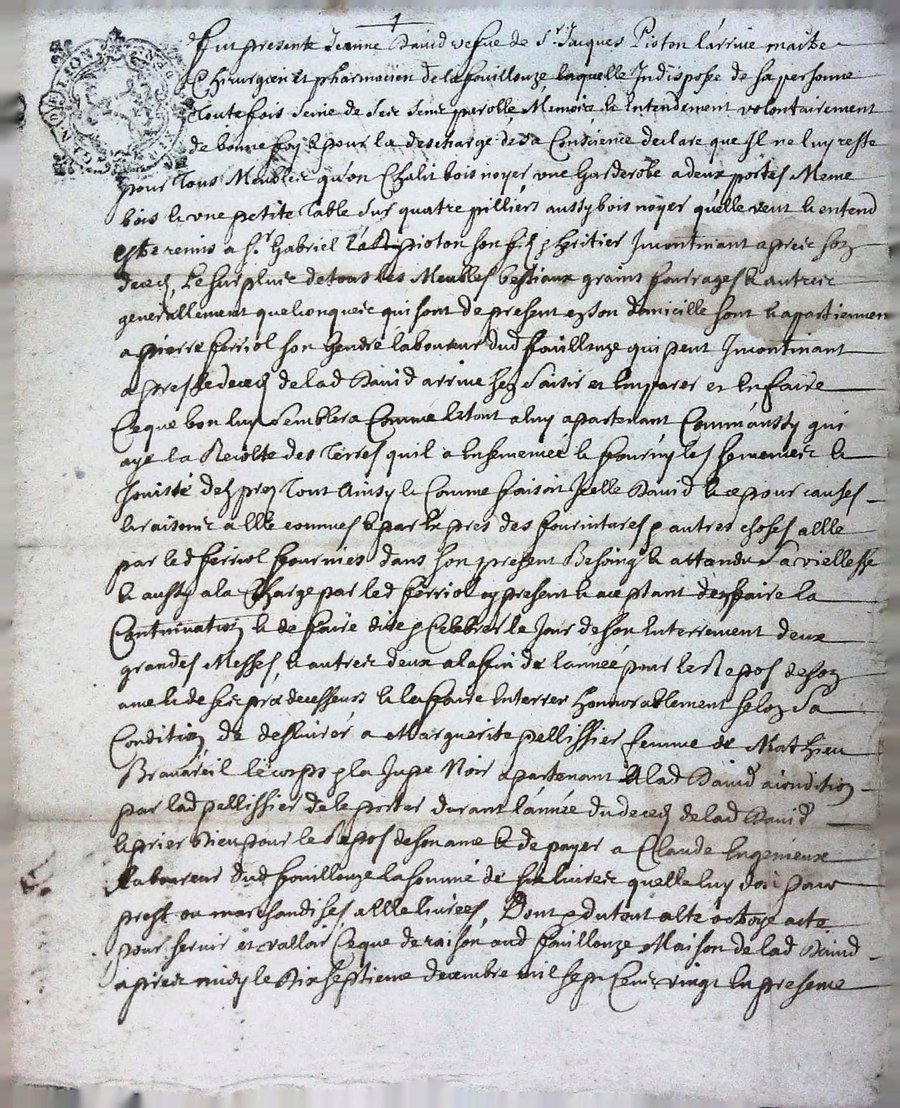 Fut presente Jeanne David vefve de Sr Jacques Pioton Larrive maitre
Chirurgien et pharmacien de la fouillouze laquelle Indisposée de sa personne
Toutefois seine de ses sens parolle Memoire & Entendement volontairement
de bonne foy & pour la descharge de sa Consience declare que Il ne luy reste
pour Tous Meubles qu'un Chalit bois noyer une Garderobe a deux portes Meme
bois & vne petite Table sur quatre pilliers aussy bois noyer qu'elle veut & entend
estre remis a Sr Gabriel pioton son fils & heritier Incontinant apres son
deces, Le surplus de tous les Meubles bestiaux grains fourrages & autres
generallement quelconques qui sont de present en son domicille sont & apartiennen
a pierre ferriol son Gendre laboureur dud fouillouze qui peut Incontinant
apres le deces de lad David arrive sen saisir et Emparer et En faire
Ceque bon luy semblera Comme le tout a luy apartenant Comm'aussy qui
aye la Recolte des Terres quil a Ensemencé & fourny les semences &
Jouisse des Tout Ainsy & Comme faisoit Icelle David & ce pour causes
& raisons a Elle connues & par Expres des fournitures & autres choses a Elle
par led ferriol fournies dans son present Besoing & attandu sa viellesse
& aussy a la Charge par led ferriol cy present & aceptant den faire la
Continuation & de faire dire & Celebrer le Jour de son Enterrement deux
grandes Messes & autres deux a la fin de l'année pour le Repos de son
ame & de ses predecesseurs & la faire Enterrer honnorablement selon sa
Condition, de deslivrer a Marguerite pellissier femme de Mathieu
le corps & la Jupe Noir apartenant a lad David a condition
par lad pellissier de le porter durant l'année du deces de lad David
& prier Dieu pour le Repos de son ame & de payer a Claude Engenieux
Laboureur dud fouillouze la somme de six livres quelle luy doit pour
prest ou marchandises a Elle livrées, Dont acte octroyé acte
pour servir et valloir Ceque de raison aud fouillouze Maison de lad David
apres midy le Dix septieme decembre mil sept Cens vingt En presence